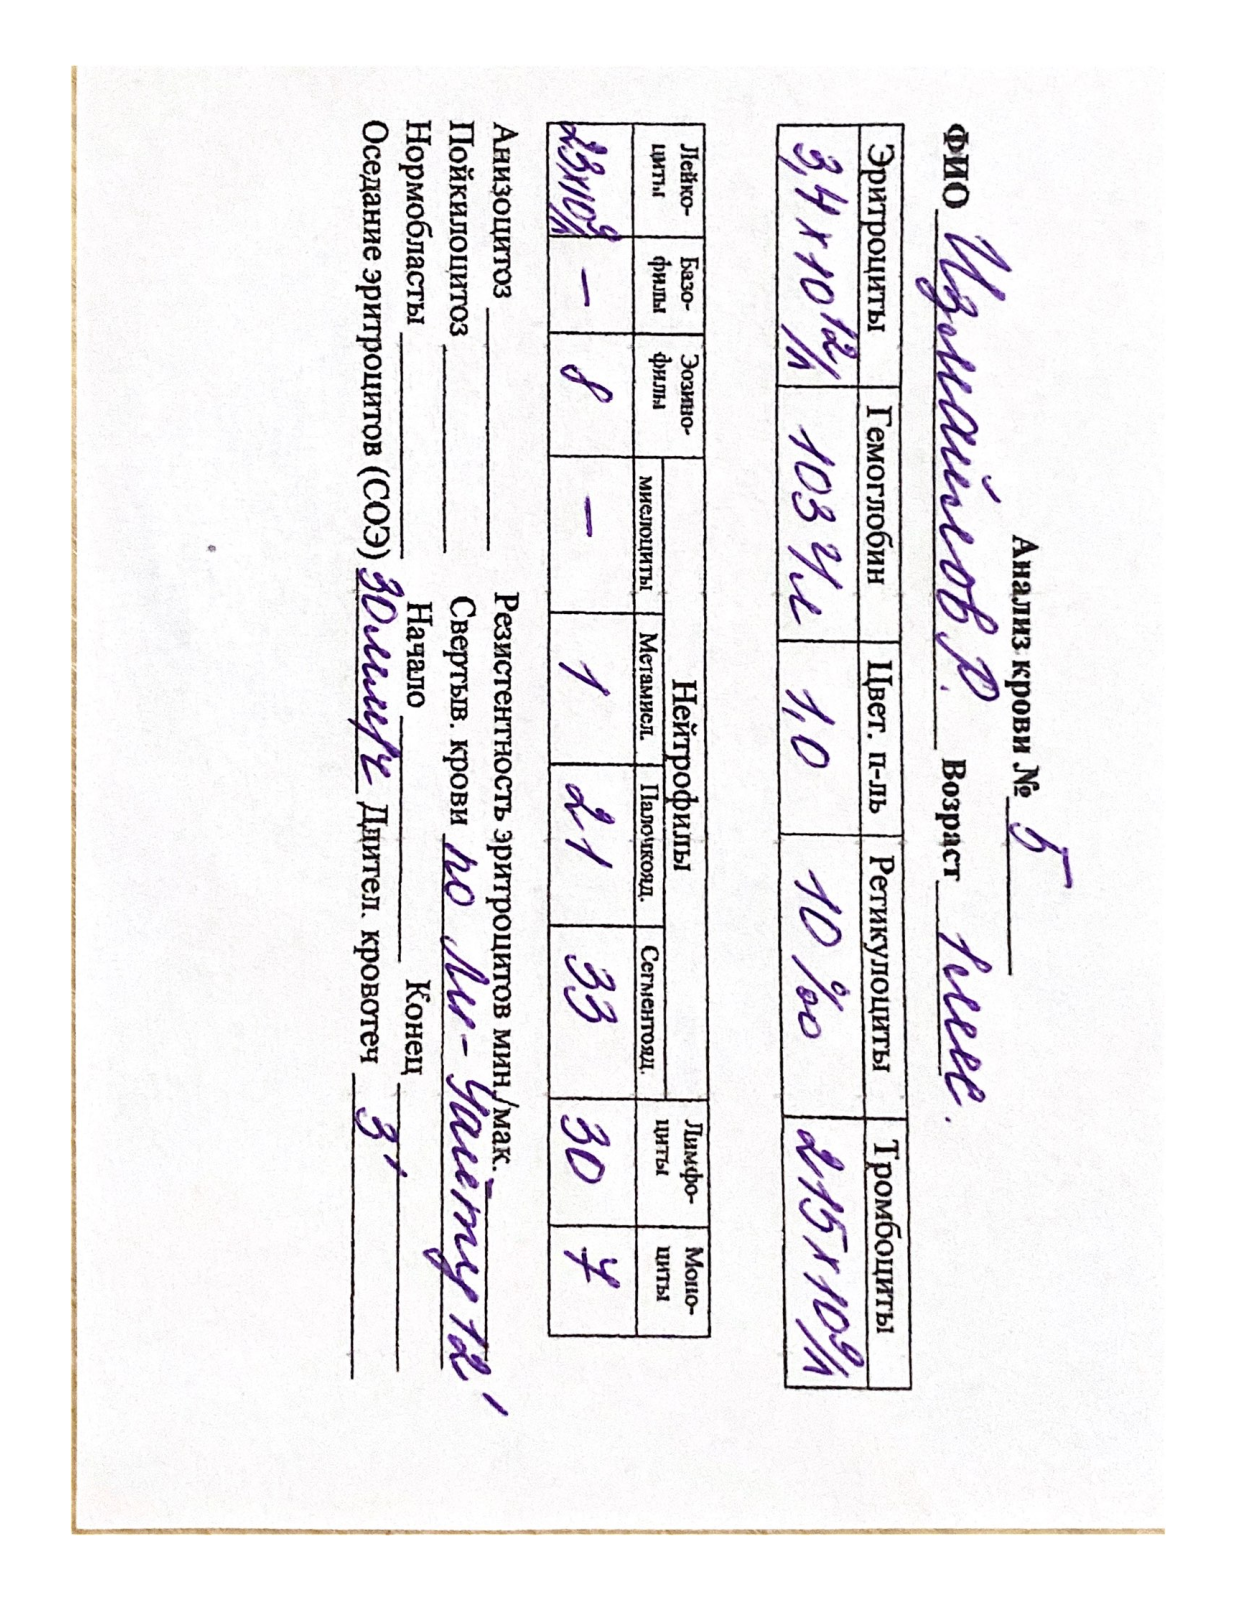 Анализ крови № 5
ФИО Измайлов Р. Возраст 1 мес.
Эритроциты Гемоглобин Цвет. п-ль Ретикулоциты Тромбоциты
3,4 х 10¹²/л 103 г/л 1,0 10 ‰ 215 х 10⁹/л
Лейко-циты Базо-филы Эозино-филы Нейтрофилы Лимфо-циты Моно-циты
миелоциты Метамиел. Палочкояд. Сегментояд.
23х10⁹/л – 8 – 1 21 33 30 7
Анизоцитоз Резистентность эритроцитов мин./мак.
Пойкилоцитоз Свертыв. крови по Ли-Уайту 12'
Нормобласты Начало Конец
Оседание эритроцитов (СОЭ) 30 мм/ч Длител. кровотеч 3'